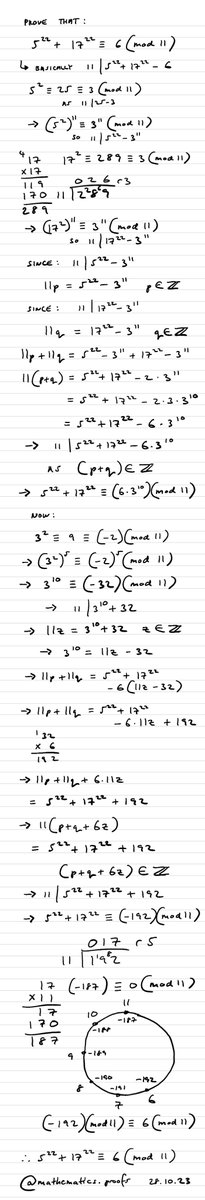 PROVE THAT:
5²² + 17²² ≡ 6 (mod 11)
↳ BASICALLY 11 | 5²² + 17²² - 6
5² ≡ 25 ≡ 3 (mod 11)
AS 11 | 25-3
→ (5²)¹¹ ≡ 3¹¹ (mod 11)
so 11 | 5²² - 3¹¹
⁴17 17² ≡ 289 ≡ 3 (mod 11)
×17
119 026 r3
170 11 | 28⁶9
289
→ (17²)¹¹ ≡ 3¹¹ (mod 11)
so 11 | 17²² - 3¹¹
SINCE: 11 | 5²² - 3¹¹
11p = 5²² - 3¹¹ p∈ℤ
SINCE: 11 | 17²² - 3¹¹
11q = 17²² - 3¹¹ q∈ℤ
11p + 11q = 5²² - 3¹¹ + 17²² - 3¹¹
11(p+q) = 5²² + 17²² - 2·3¹¹
= 5²² + 17²² - 2·3·3¹⁰
= 5²² + 17²² - 6·3¹⁰
→ 11 | 5²² + 17²² - 6·3¹⁰
AS (p+q) ∈ ℤ
→ 5²² + 17²² ≡ (6·3¹⁰)(mod 11)
NOW:
3² ≡ 9 ≡ (-2)(mod 11)
→ (3²)⁵ ≡ (-2)⁵ (mod 11)
→ 3¹⁰ ≡ (-32)(mod 11)
→ 11 | 3¹⁰ + 32
→ 11z = 3¹⁰ + 32 z∈ℤ
→ 3¹⁰ = 11z - 32
→ 11p + 11q = 5²² + 17²²
- 6(11z - 32)
→ 11p + 11q = 5²² + 17²²
- 6·11z + 192
¹32
× 6
192
→ 11p + 11q + 6·11z
= 5²² + 17²² + 192
→ 11(p+q+6z)
= 5²² + 17²² + 192
(p+q+6z) ∈ ℤ
→ 11 | 5²² + 17²² + 192
→ 5²² + 17²² ≡ (-192)(mod 11)
017 r5
11 | 1¹9⁸2
17 (-187) ≡ 0 (mod 11)
×11
17
170
187
11
-187
10
-188
9 -189
8
-190
7
-191
6
-192
(-192)(mod 11) ≡ 6 (mod 11)
∴ 5²² + 17²² ≡ 6 (mod 11)
@mathematics.proofs 28.10.23